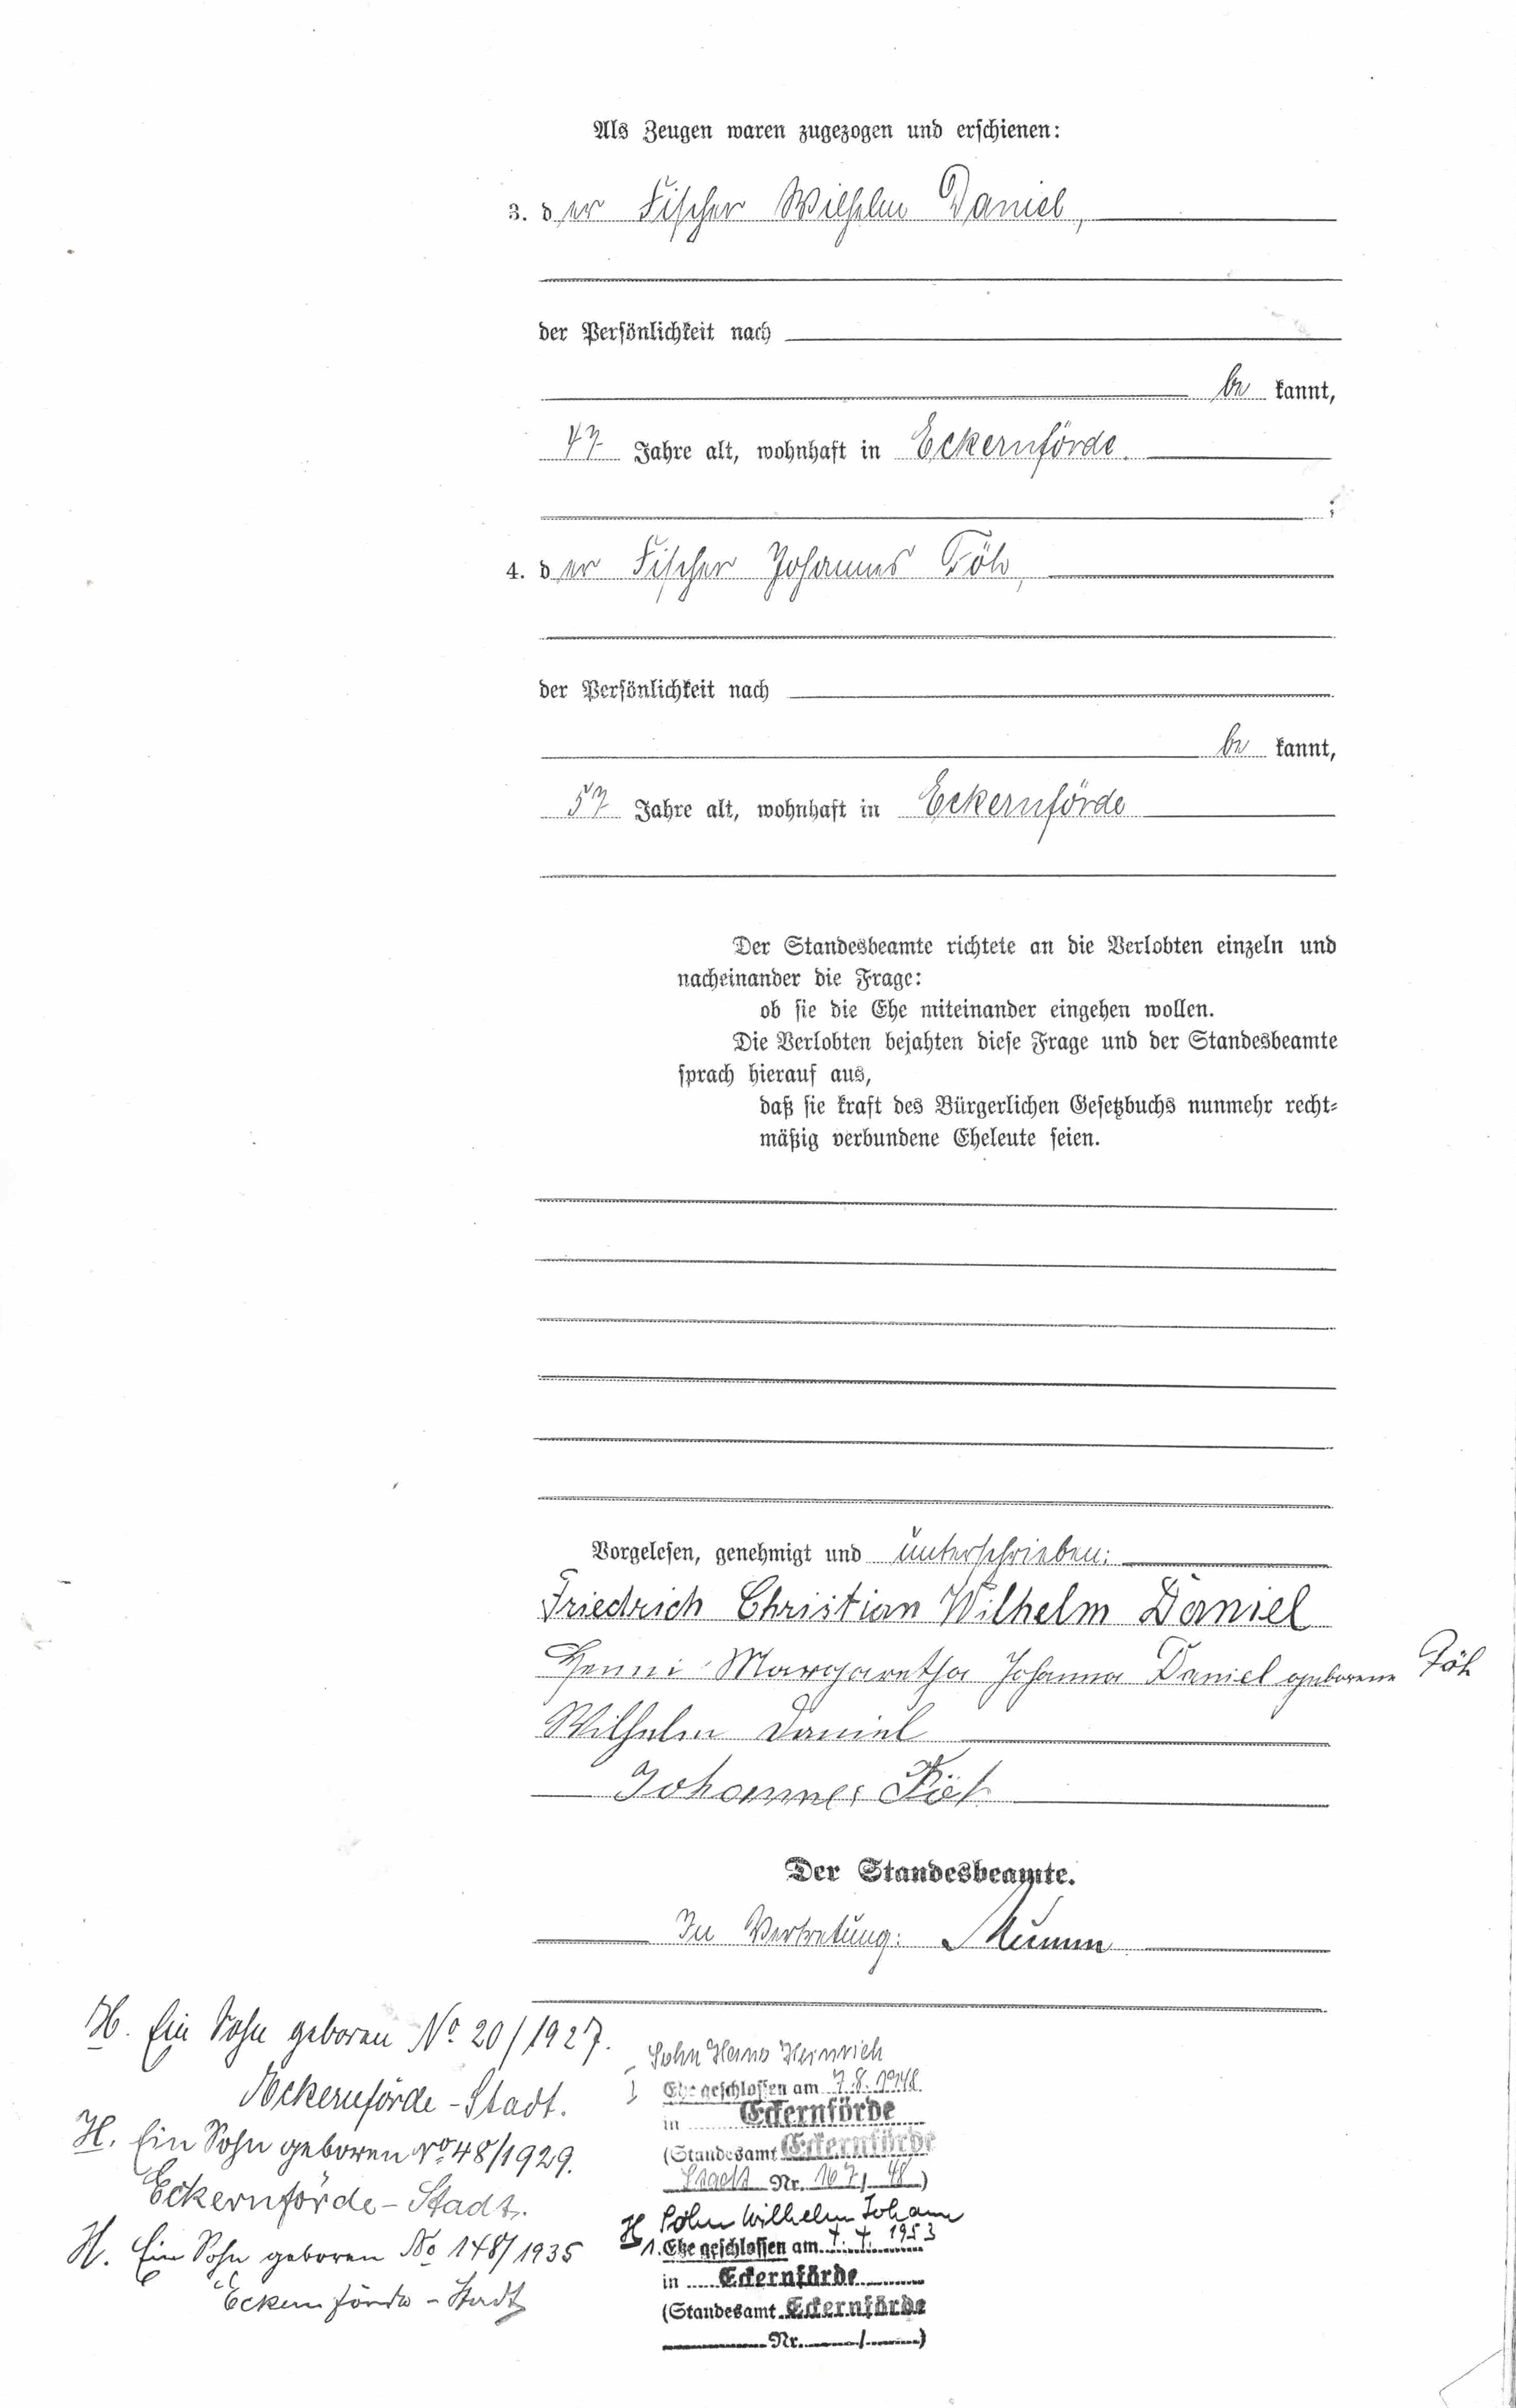 Als Zeugen waren zugezogen und erschienen:
3. der Fischer Wilhelm Daniel,
der Persönlichkeit nach
be kannt,
47 Jahre alt, wohnhaft in Eckernförde.
;
4. der Fischer Johannes Föh,
der Persönlichkeit nach
be kannt,
57 Jahre alt, wohnhaft in Eckernförde
Der Standesbeamte richtete an die Verlobten einzeln und
nacheinander die Frage:
ob sie die Ehe miteinander eingehen wollen.
Die Verlobten bejahten diese Frage und der Standesbeamte
sprach hierauf aus,
daß sie kraft des Bürgerlichen Gesetzbuchs nunmehr recht-
mäßig verbundene Eheleute seien.
Vorgelesen, genehmigt und unterschrieben:
Friedrich Christian Wilhelm Daniel
Henni Margaretha Johanna Daniel geborene Föh
Wilhelm Daniel
Johannes Föh
Der Standesbeamte.
In Vertretung: Mumm
H. Ein Sohn geboren No 20/1927.
Eckernförde-Stadt.
H. Ein Sohn geboren No 48/1929.
Eckernförde-Stadt.
H. Ein Sohn geboren No 148/1935
Eckernförde-Stadt
Sohn Hans Heinrich
Ehe geschlossen am 7.8.1948
in Eckernförde
(Standesamt Eckernförde
Nr. 167/48)
H Sohn Wilhelm Johann
1. Ehe geschlossen am 4. 4. 1953
in Eckernförde
(Standesamt Eckernförde
Nr. / )